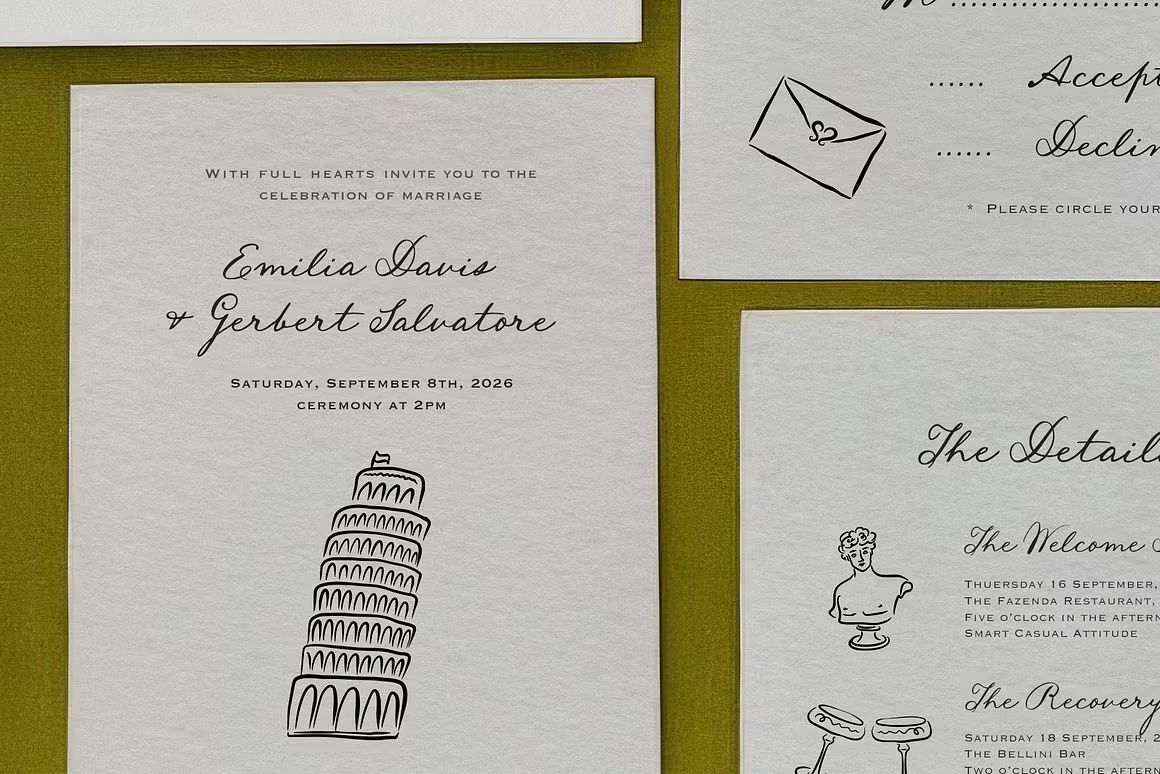 WITH FULL HEARTS INVITE YOU TO THE
CELEBRATION OF MARRIAGE
Emilia Davis
& Gerbert Salvatore
SATURDAY, SEPTEMBER 8TH, 2026
CEREMONY AT 2PM
M ......................
...... Accept
...... Declin
* PLEASE CIRCLE YOUR
The Detail
The Welcome
THUERSDAY 16 SEPTEMBER,
THE FAZENDA RESTAURANT,
FIVE O'CLOCK IN THE AFTERN
SMART CASUAL ATTITUDE
The Recovery
SATURDAY 18 SEPTEMBER, 2
THE BELLINI BAR
TWO O'CLOCK IN THE AFTERN